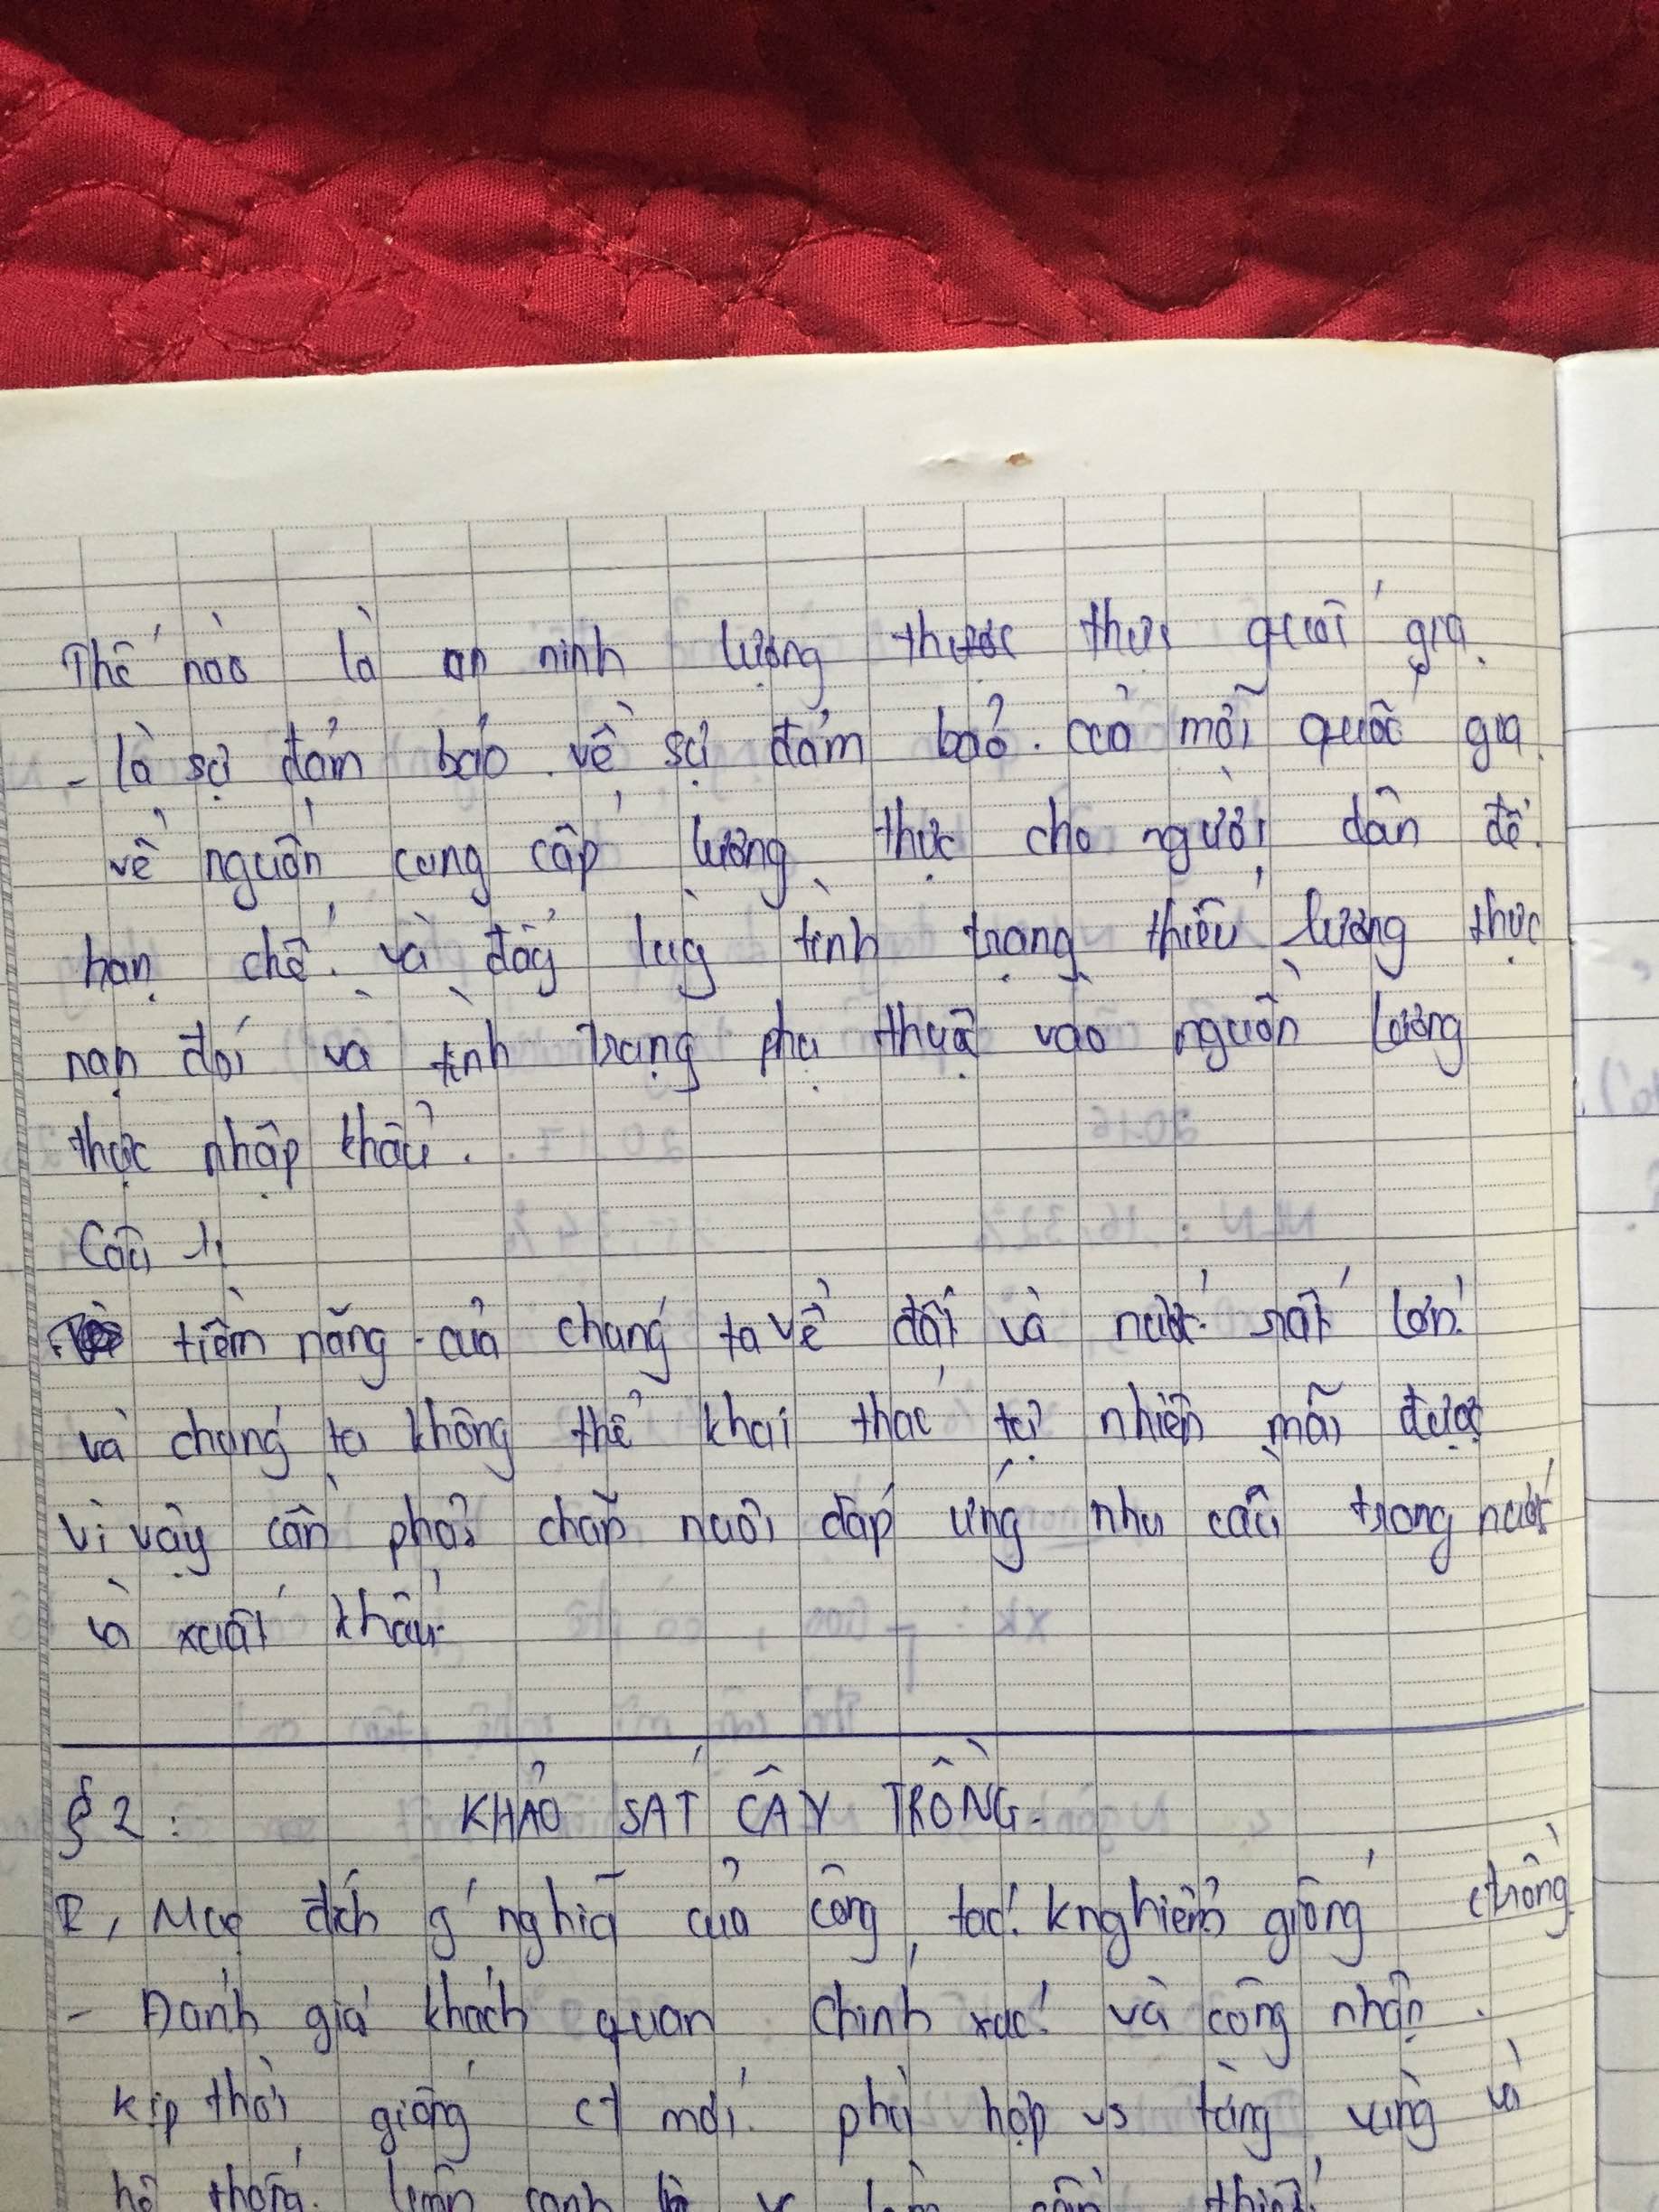 Thế nào là an ninh lương thực quốc gia.
- là sự đảm bảo về sự đảm bảo của mỗi quốc gia
về nguồn cung cấp lương thực cho người dân để
hạn chế và đẩy lùi tình trạng thiếu lương thực
nạn đói và tình trạng phụ thuộc vào nguồn lương
thực nhập khẩu.
Câu 1,
tiềm năng của chúng ta về đất và nước rất lớn
và chúng ta không thể khai thác tự nhiên mãi được
vì vậy cần phải chăn nuôi đáp ứng nhu cầu trong nước
và xuất khẩu
§2: KHẢO SÁT CÂY TRỒNG.
I, Mục đích ý nghĩa của công tác knghiệm giống ctrồng
- Đánh giá khách quan chính xác và công nhận
kịp thời giống CT mới phù hợp vs từng vùng và
hệ thống luân canh là v làm cần thiết